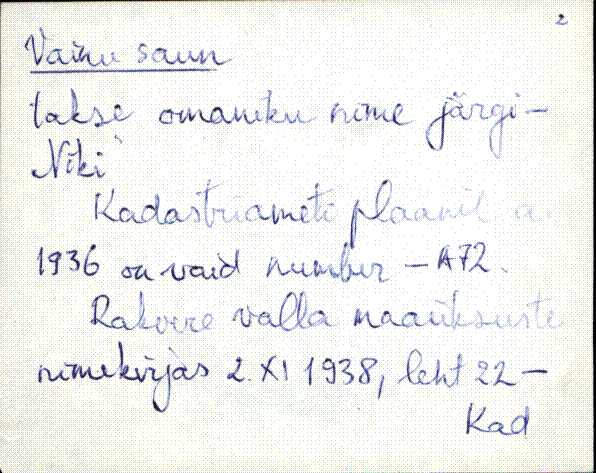 2
Vainu saun
takse omaniku nime järgi –
Niki
Kadastriameti plaanil a.
1936 on vaid number – A72.
Rakvere valla maaüksuste
nimekirjas 2. XI 1938, leht 22 –
Kad